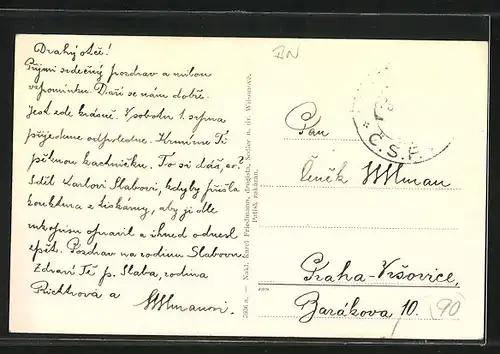 Drahý otče!
Přijmi srdečný pozdrav a milou
vzpomínku. Daří se nám dobře.
Jest zde krásně. V sobotu 1. srpna
přijedeme odpoledne. Krmíme Ti
pěknou kachničku. To si dáš, co?
Sděl Karlovi Slabovi, kdyby přišla
korektura z tiskárny, aby ji dle
rukopisu opravil a ihned odnesl
zpět. Pozdrav na rodinu Slabovu
Zdraví Tě p. Slaba, rodina
a Ullmanovi.
3936 a. — Nakl. Karel Friedmann, drogista, Sedlec n. dr. Wilsonově.
Potisk zakázán.
Č.S.P.
Pán
Čeněk Ullman
Praha-Vršovice,
Barákova 10.
90